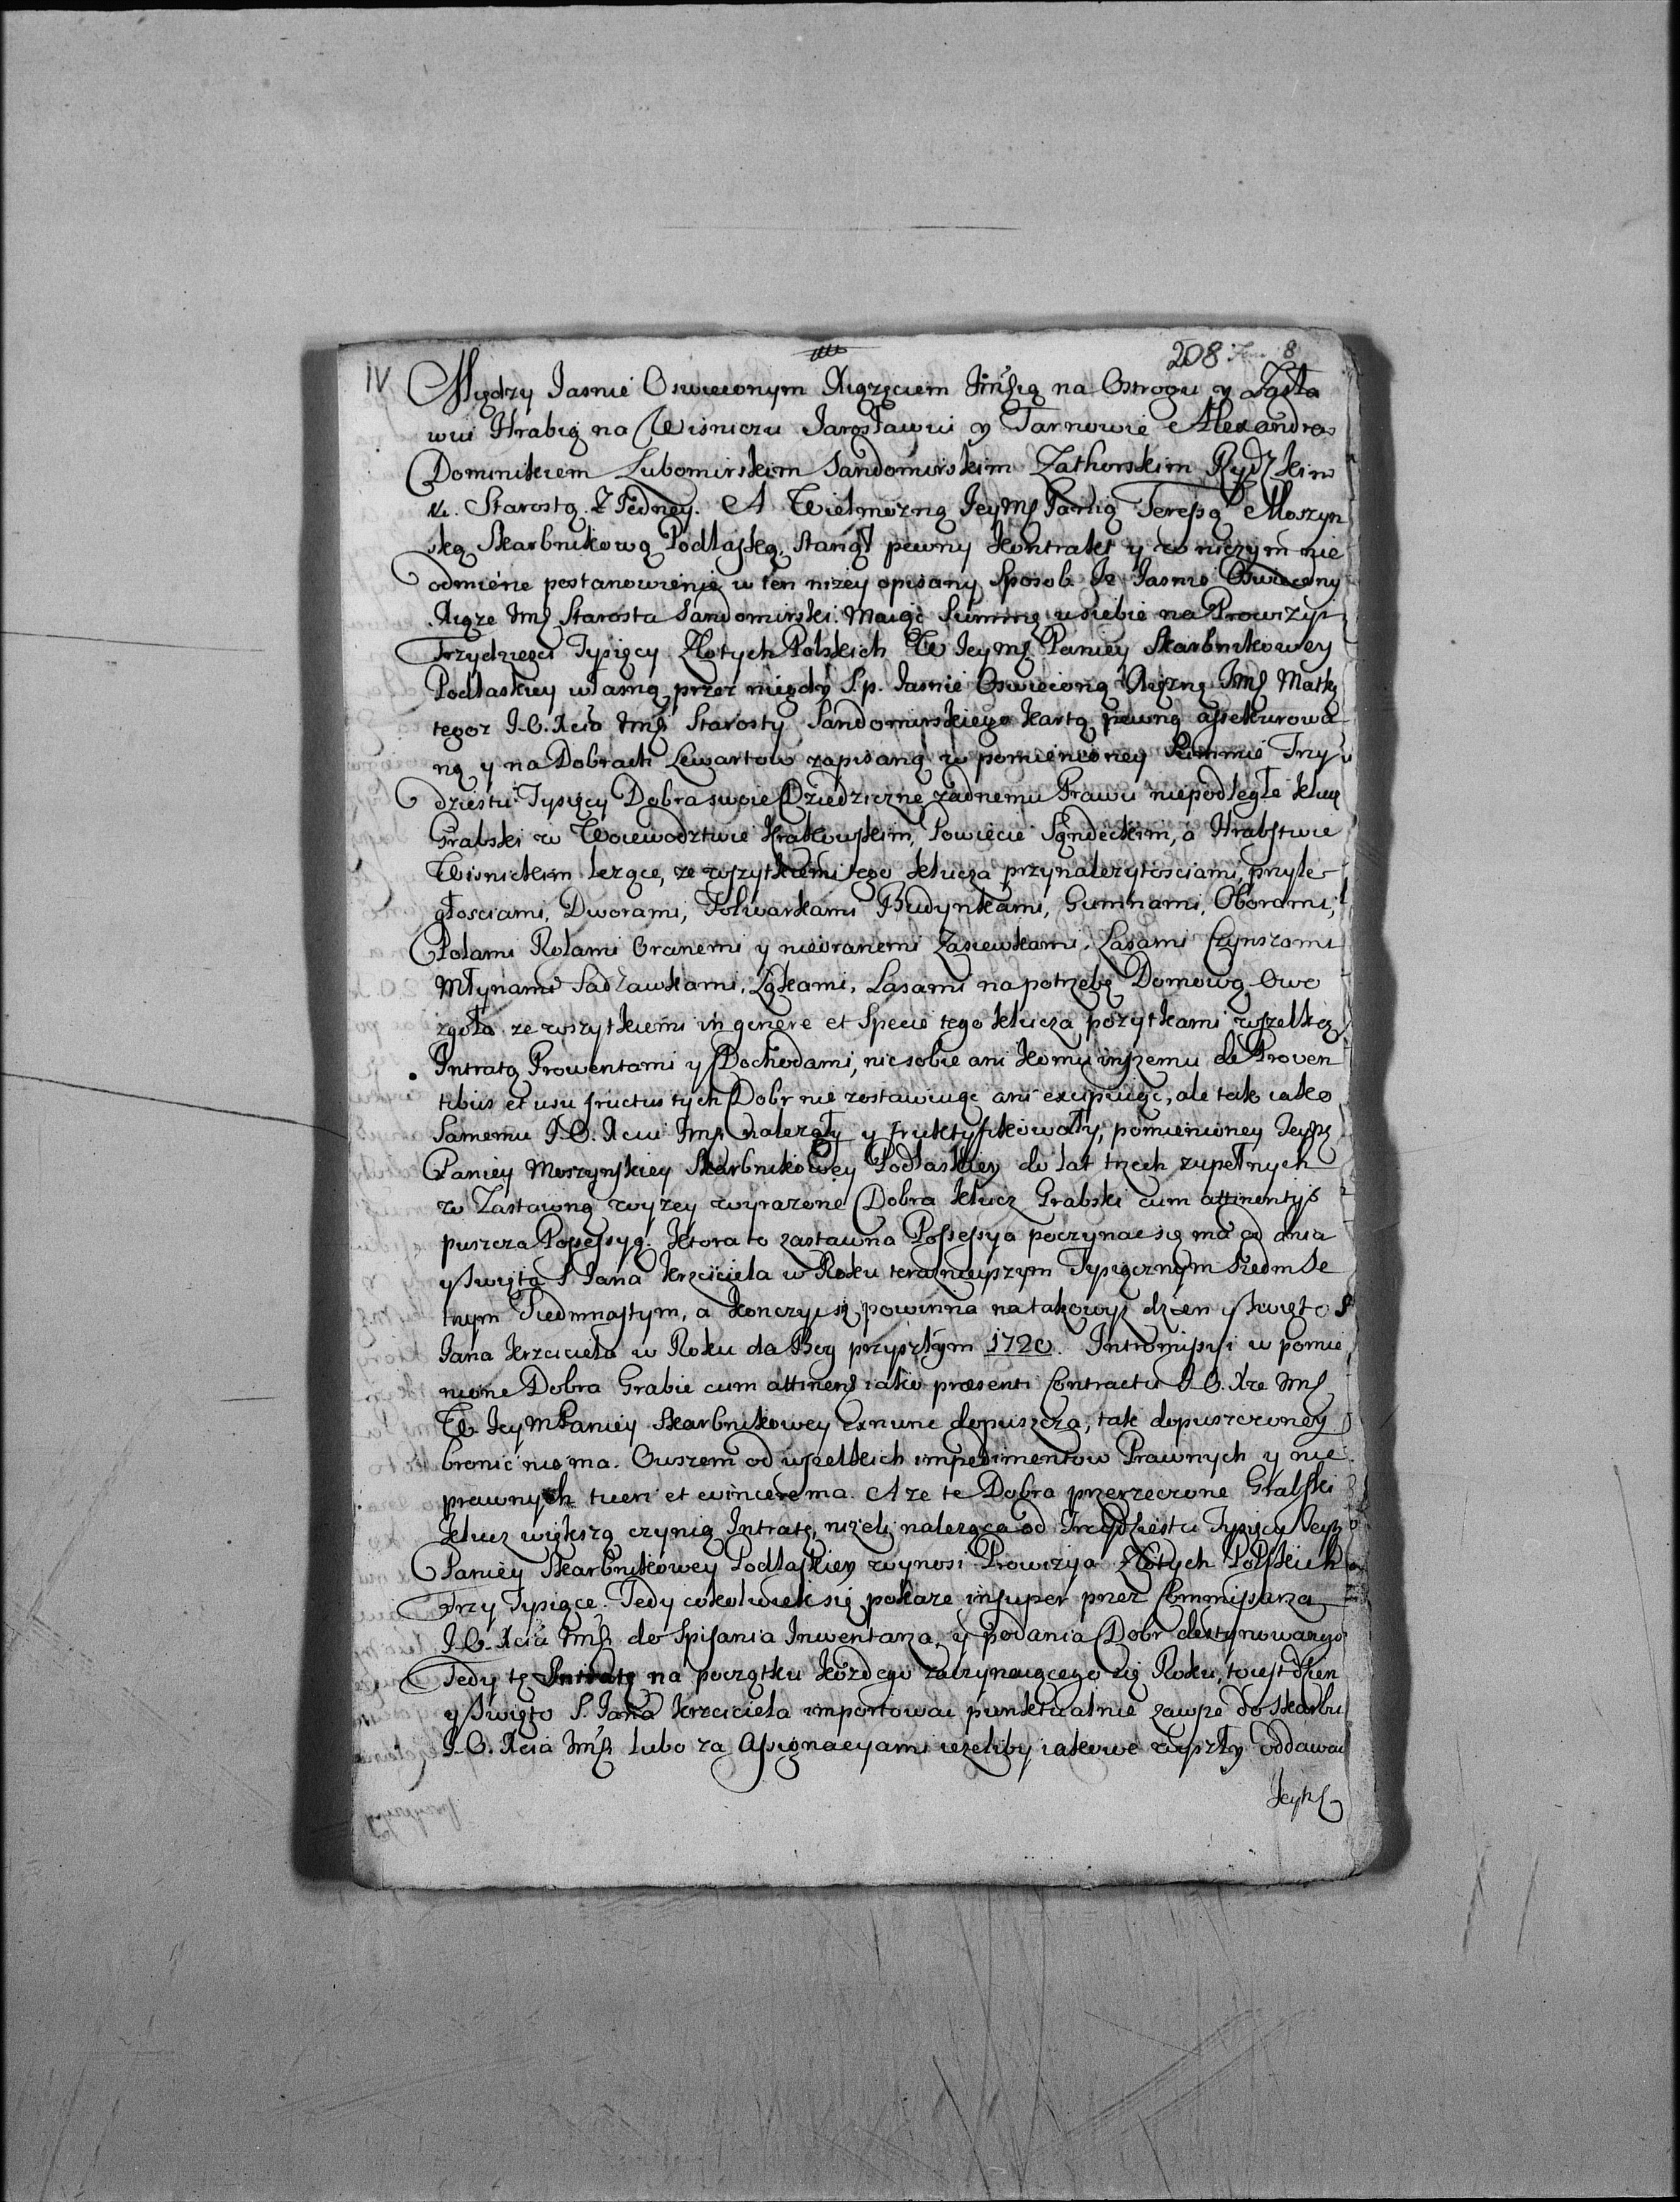 208 8
IV Między Jasnie Oswieconym Xiązęciem Jmścią na Ostrogu y Zasła
wiu Hrabią na Wisniczu Jarosławiu y Tarnowie Alexandrem
Dominikiem Lubomirskim Sandomirskim Zathorskim Rydzkim
Starostą. Z Jedney. A Wielmozną Jeymś Panią Teressą Moszyn
ską Skarbnikową Podlaską. Stanął pewny Kontrakt y w niczym nie
odmienne postanowienie w ten nizey opisany Sposob. Iz Jasnie Oswiecony
Xiąze Jmś Starosta Sandomirski. Maiąc Summę u siebie na Prowizyi
Trzydziesci Tysięcy Złotych Polskich W Jeymś Paniey Skarbnikowey
Podlaskiey własną przez niegdy S.p. Jasnie Oswieconą Xięzną Jmś Matkę
tegoz J.O. Xcia Jmśi Starosty Sandomirskiego kartą pewną assekurowa
ną y na Dobrach Lewartow zapisaną w pomienioney Summie Trzy
dziestu Tysięcy Dobra swoie Dziedziczne zadnemu Prawu niepodległe Klucz
Grabski w Woiewodztwie Krakowskim, Powiecie Sąndeckim, a Hrabstwie
Wisnickim lezące, ze wszytkiemi tego Klucza przynalezytosciami, przyle
głosciami, Dworami, Folwarkami Budynkami, Gumnami, Oborami,
Polami Rolami Oranemi y nieoranemi Zasiewkami, Lasami Czynszami
Młynami Sadzawkami, Łąkami, Lasami na potrzebę Domową Owo
zgoła ze wszytkiemi in genere et Specie tego Klucza pozytkami wszelką
Intratą Prowentami y Dochodami, nic sobie ani komu inszemu de Proven
tibus et usu fructus tych Dobr nie zostawuiąc ani excypuiąc, ale tak iako
Samemu J.O. Xciu Jmśi nalezały y fruktyfikowały, pomienioney Jeymś
Paniey Moszynskiey Skarbnikowey Podlaskiey do lat trzech zupełnych
w Zastawną wyzey wyrazone Dobra Klucz Grabski cum attinentys
puszcza Possessyą. Ktora to zastawna Possessya poczynac się ma od dnia
y Swięta S. Jana Krzciciela w Roku teraznieyszym Tysiącznym Siedmse
tnym Siedmnastym, a konczyc się powinna na takowyz dzien y Swięto S
Jana Krzciciela w Roku da Bog przyszłym 1720. Intromissyi w pomie
nione Dobra Grabie cum attinenś iako præsenti Contractu J.O. Xze Jmś
W. Jeym Paniey Skarbnikowey ex nunc dopuszcza, tak dopuszczoney
bronic nie ma. Owszem od wszelkich impedimentow Prawnych y nie
prawnych tueri et evincere ma. A ze te Dobra przerzeczone Grabski
Klucz większą czynią Intratę, nizeli naleząca od Trzydziestu Tysięcy Jeyś
Paniey Skarbnikowey Podlaskiey wynosi Prowizya Złotych Polskich
Trzy Tysiące. Tedy cokolwiek się pokaze insuper przez Commissarza
J.O. Xcia Jmśi do Spisania Inwentarza, y podania Dobr destynowanego
Tedy tę Intratę na początku kozdego zaczynaiącego się Roku, to iest dzien
y Swięto S. Jana Krzciciela importowac punktualnie zawsze do Skarbu
J.O. Xcia Jmśi lubo za Assignacyami iezeliby iakowe wyszły oddawac